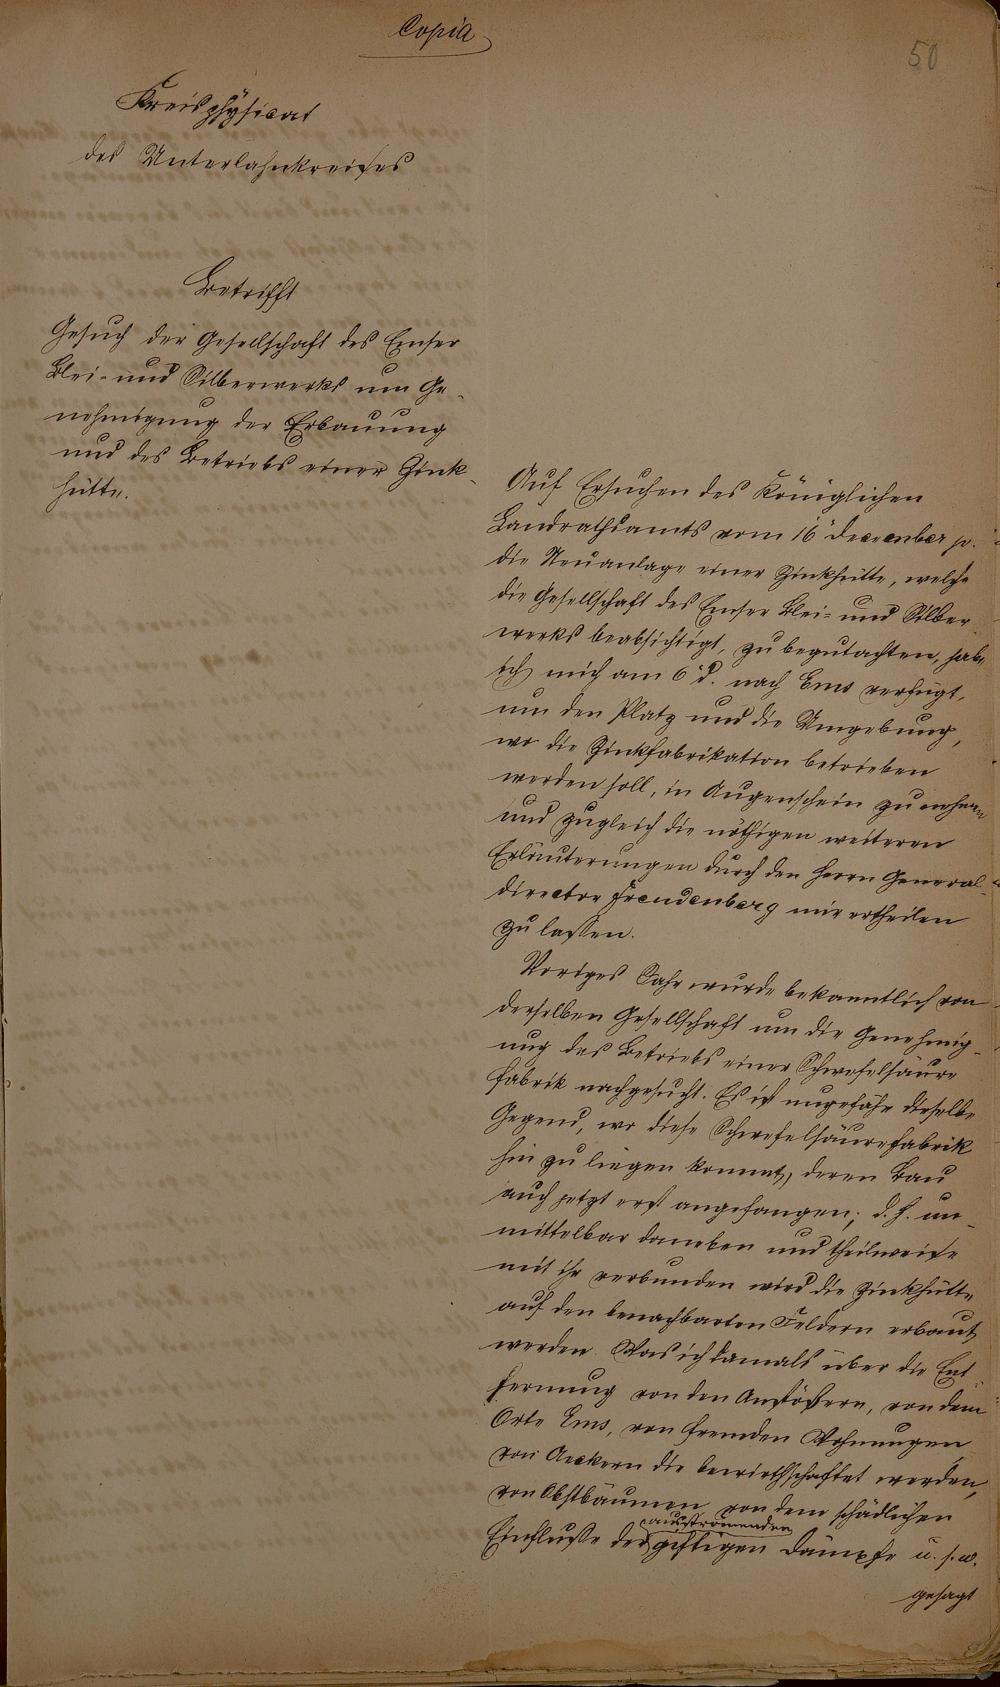 Copia
50
Kreisphysicat
des Unterlahnkreises
Betrifft
Gesuch der Gesellschaft des Emser
Blei- und Silberwerks um Ge-
nehmigung der Erbauung
und des Betriebs einer Zink-
hütte.
Auf Ersuchen des Königlichen
Landrathsamts vom 16 December p.
die Neuanlage einer Zinkhütte, welche
die Gesellschaft des Emser Blei- und Silber
werks beabsichtigt, zu begutachten, habe
ich mich am 6 d. nach Ems verfügt,
um den Platz und die Umgebung,
wo die Zinkfabrikation betrieben
werden soll, in Augenschein zu nehmen
und zugleich die nöthigen weiteren
Erläuterungen durch den Herrn General-
director Freudenberg mir ertheilen
zu lassen.
Voriges Jahr wurde bekanntlich von
derselben Gesellschaft um die Genehmig-
ung des Betriebs einer Schwefelsäure
fabrik nachgesucht. Es ist ungefähr dieselbe
Gegend, wo diese Schwefelsäurefabrik
hin zu liegen kommt, deren Bau
auch jetzt erst angefangen; d. h. un-
mittelbar daneben und theilweise
mit ihr verbunden wird die Zinkhütte
auf den benachbarten Feldern erbaut
werden. Was ich damals über die Ent-
fernung von den Anstößern, von dem
Orte Ems, von fremden Wohnungen
von Aeckern die bewirthschaftet werden,
von Obstbäumen von dem schädlichen
ausströmenden
Einflusse der giftigen Dämpfe u. s. w.
gesagt